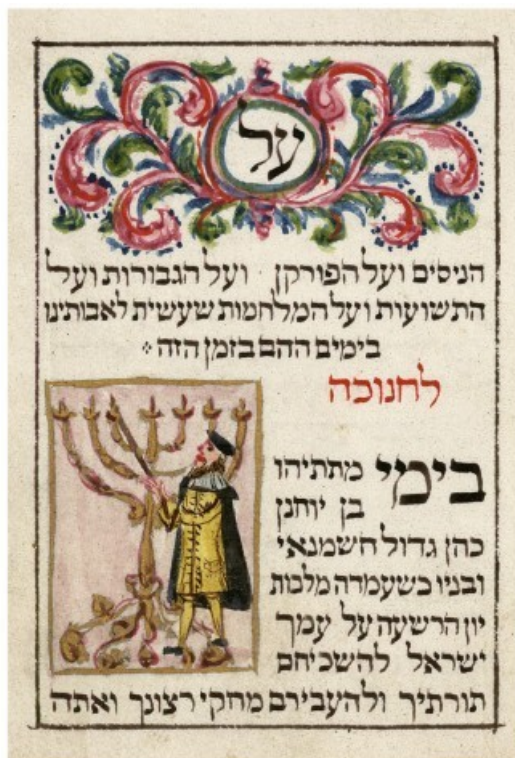 על
הניסים ועל הפורקן ועל הגבורות ועל
התשועות ועל המלחמות שעשית לאבותינו
בימים ההם בזמן הזה
לחנוכה
בימי מתתיהו
בן יוחנן
כהן גדול חשמנאי
ובניו כשעמדה מלכות
יון הרשעה על עמך
ישראל להשכיחם
תורתיך ולהעבירם מחקי רצונך ואתה